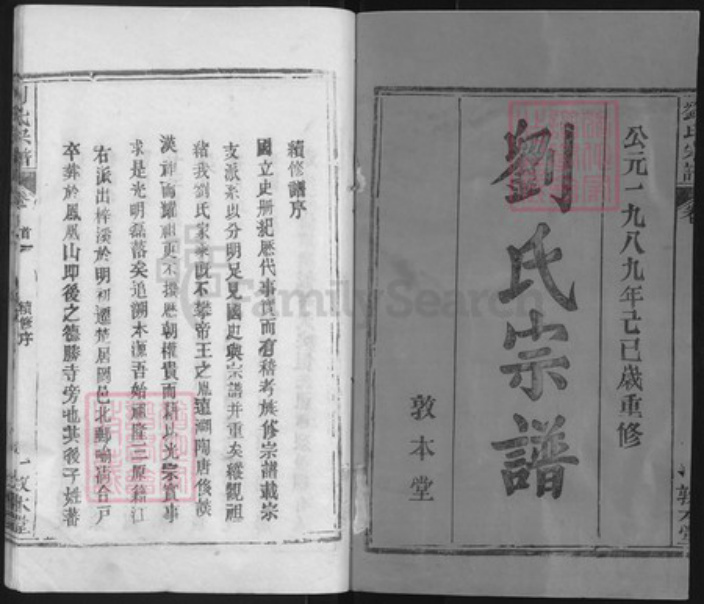 公元一九八九年己巳歲重修
劉氏宗譜
敦本堂
劉氏宗譜
卷
敦本堂
續修譜序
國立史冊紀歷代事實而有稽考族修宗譜載宗
支派系以分明足見國史與宗譜并重矣緬觀祖
豬我劉氏家乘既不攀帝王之胤遠溯陶唐後談
漢祚而耀祖更不援歷朝權貴而藉以光宗實事
求是光明磊落矣追溯本源吾始廬隆三原籍江
右派出梓溪於明初遷楚居岡邑北鄉喻荷合戶
卒葬於鳳凰山即後之德勝寺旁也其後子姓蕃
劉氏宗譜
卷首
續修序
一
敦本堂
FamilySearch